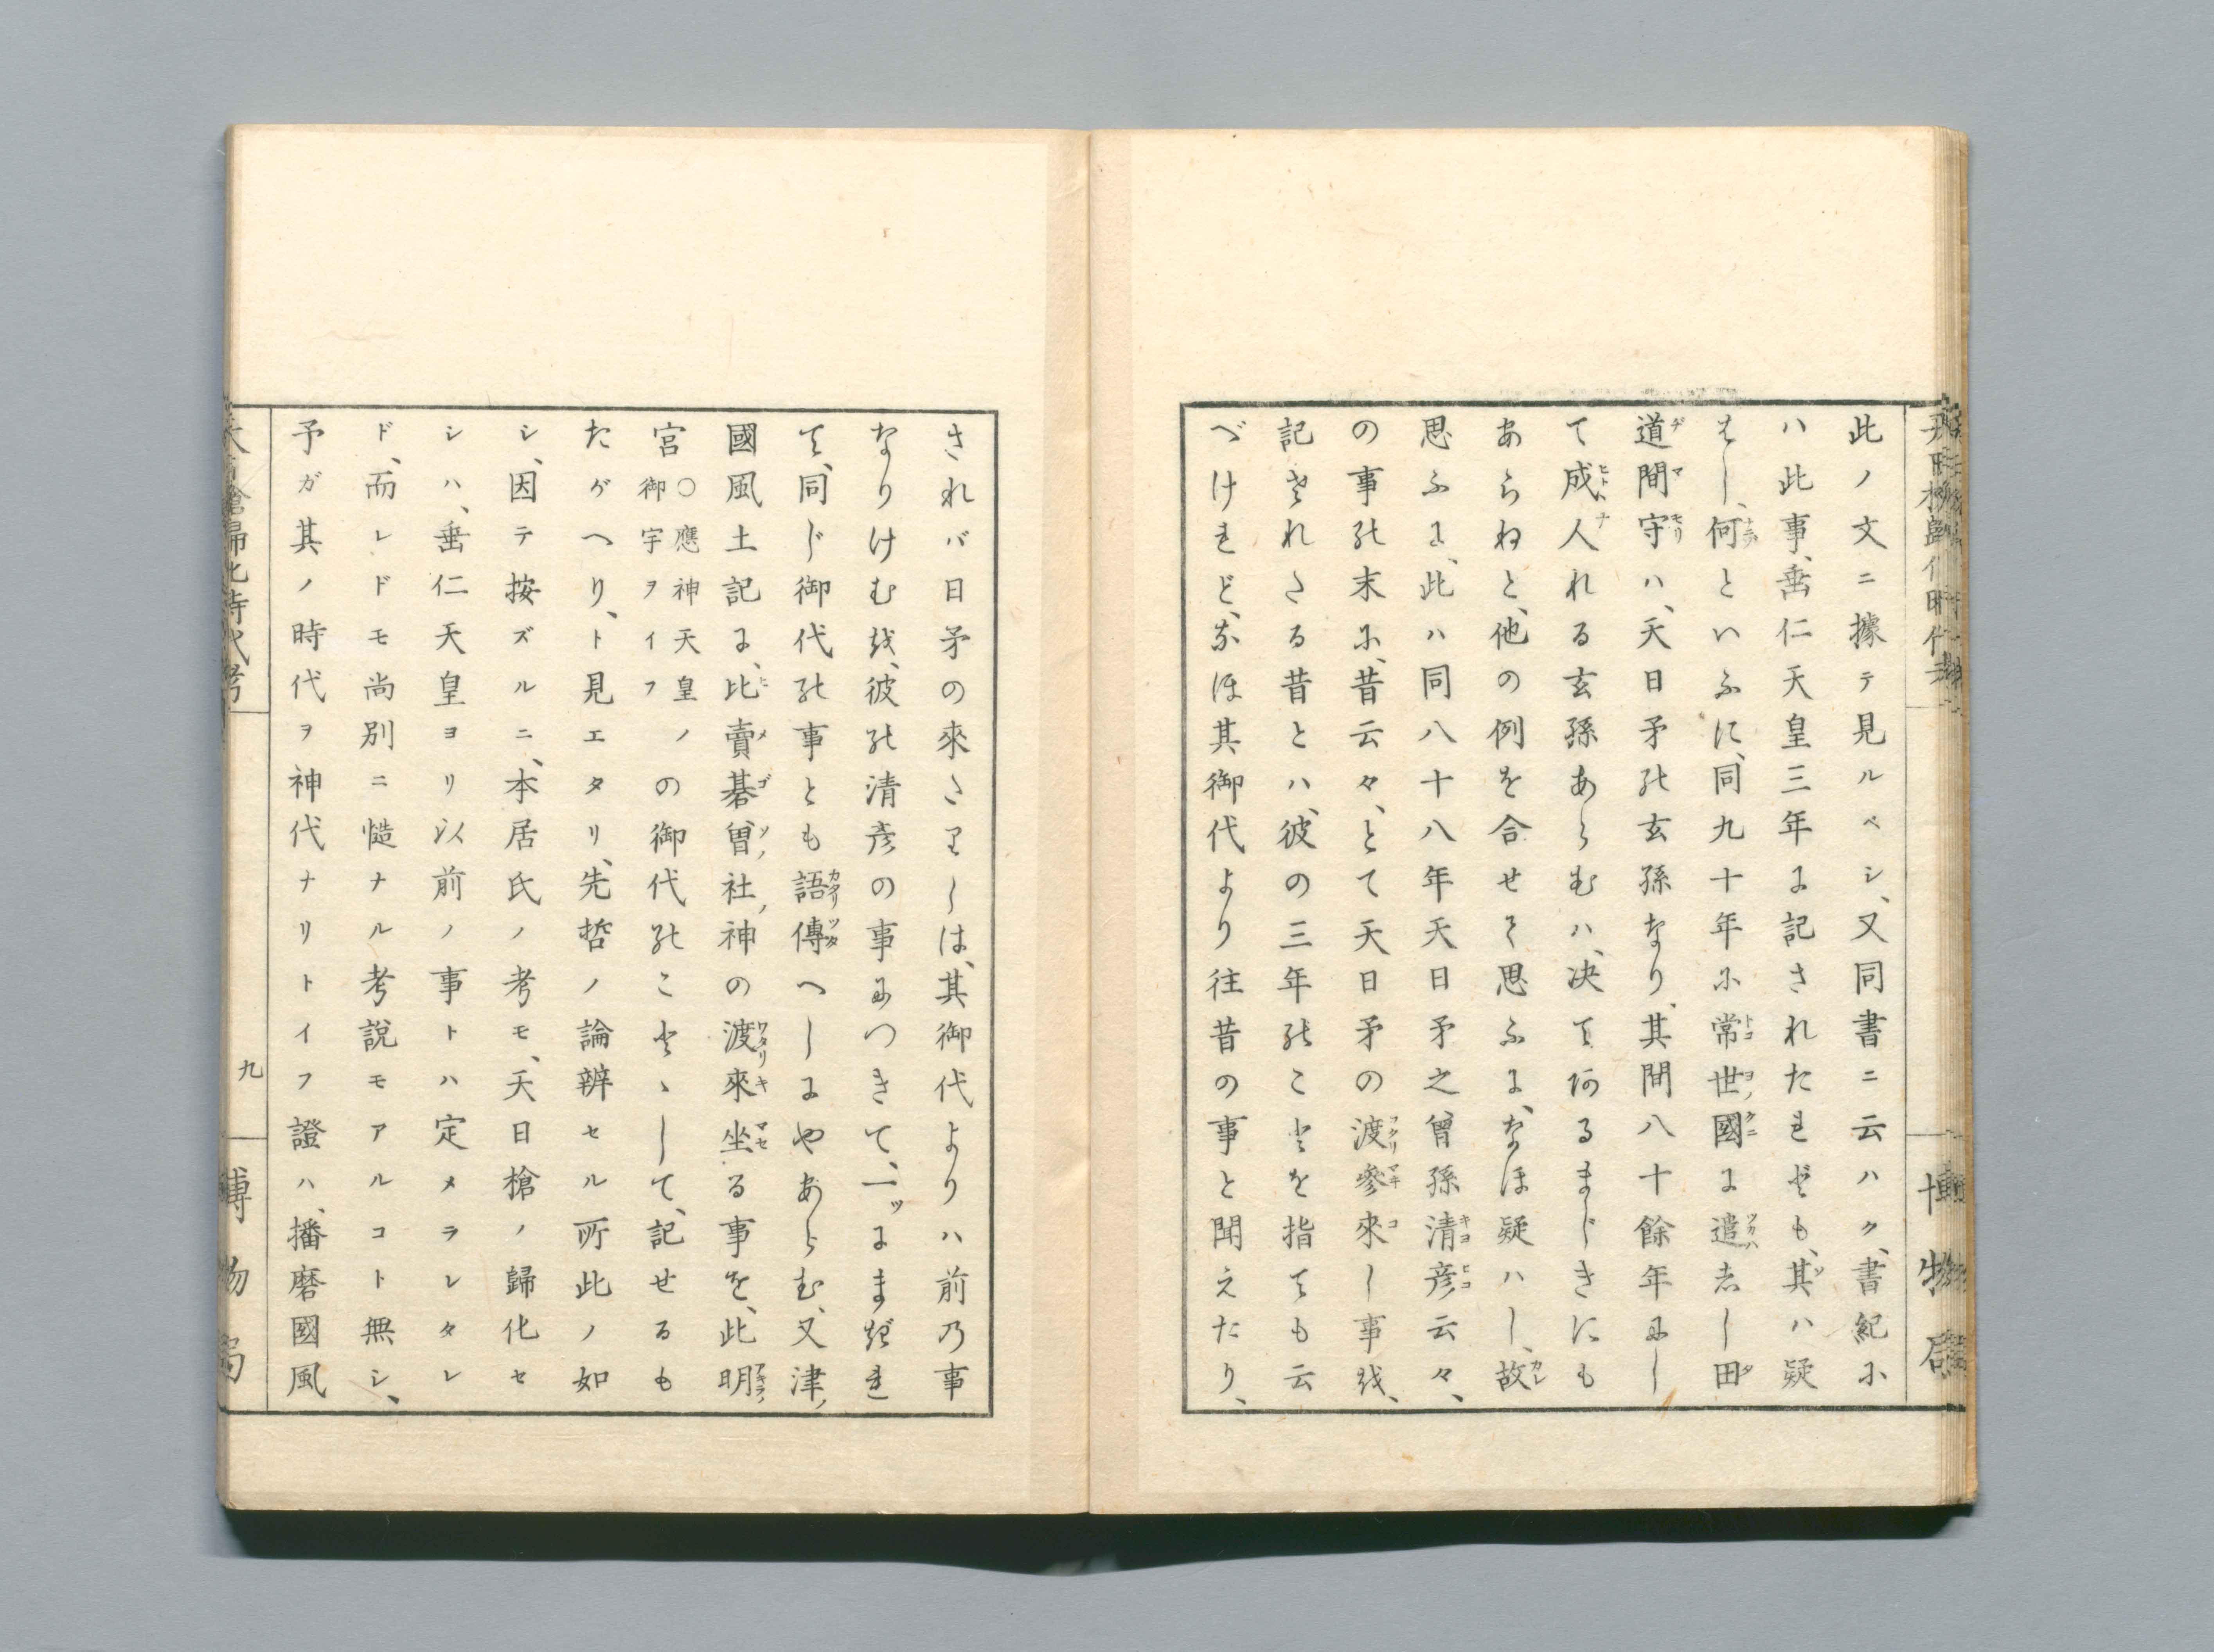 此ノ文ニ據テ見ルベシ、又同書ニ云ハク、書紀に
ハ此事、垂仁天皇三年に記されたれども、其ハ疑
はし、何といふに、同九十年に常世國に遣はしし田
道間守ハ、天日矛の玄孫なり、其間八十餘年にし
て成人れる玄孫あらむハ、决て有るまじきにも
あらねと、他の例を合せて思ふに、なほ疑ハし、故
思ふに、此ハ同八十八年天日矛之曾孫清彦云々、
の事の末に、昔云々、とて天日矛の渡參來し事を、
記されたる昔とハ、彼の三年のことを指ても云
べけれど、なほ其御代より往昔の事と聞えたり、
されバ日矛の來たりしは、其御代よりハ前乃事
なりけむを、彼の清彦の事につきて、一ッにまぎれ
て、同じ御代の事とも語傳へしにやあらむ、又津
國風土記に、比賣碁曾社神の渡來坐る事を、此明
宮○應神天皇ノ御宇ヲイフの御代のことゝして、記せるも
たがへり、ト見エタリ、先哲ノ論辨セル所此ノ如
シ、因テ按ズルニ、本居氏ノ考モ、天日槍ノ歸化セ
シハ、垂仁天皇ヨリ以前ノ事トハ定メラレタレ
ド、而レドモ尚別ニ慥ナル考說モアルコト無シ、
予ガ其ノ時代ヲ神代ナリトイフ證ハ、播磨國風
天日槍歸化時代考
九
博物局